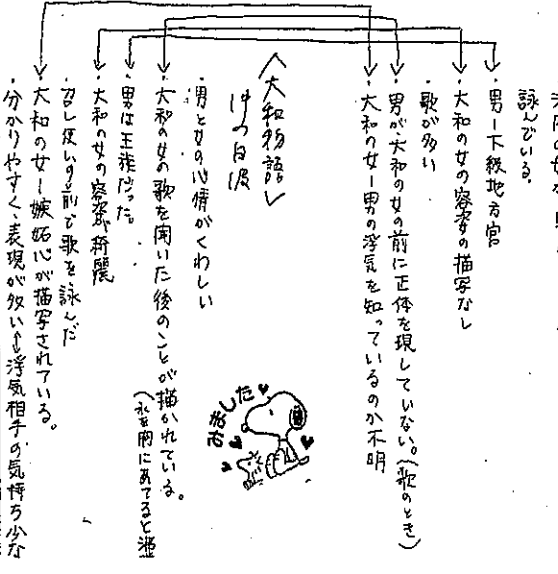 詠んでいる。
・男ー下級地方官
・大和の女の容姿の描写なし
・歌が多い
・男が大和の女の前に正体を現していない。(歌のとき)
・大和の女ー男の浮気を知っているのか不明
〈大和物語〉
白波
・男と女の心情がくわしい
・大和の女の歌を聞いた後のことが描かれている。
・男は王族だった。
・大和の女の容姿が綺麗
・召し使いの前で歌を詠んだ
・大和の女ー嫉妬心が描写されている。
・分かりやすく、表現が多い⇔浮気相手の気持ち少な
みました